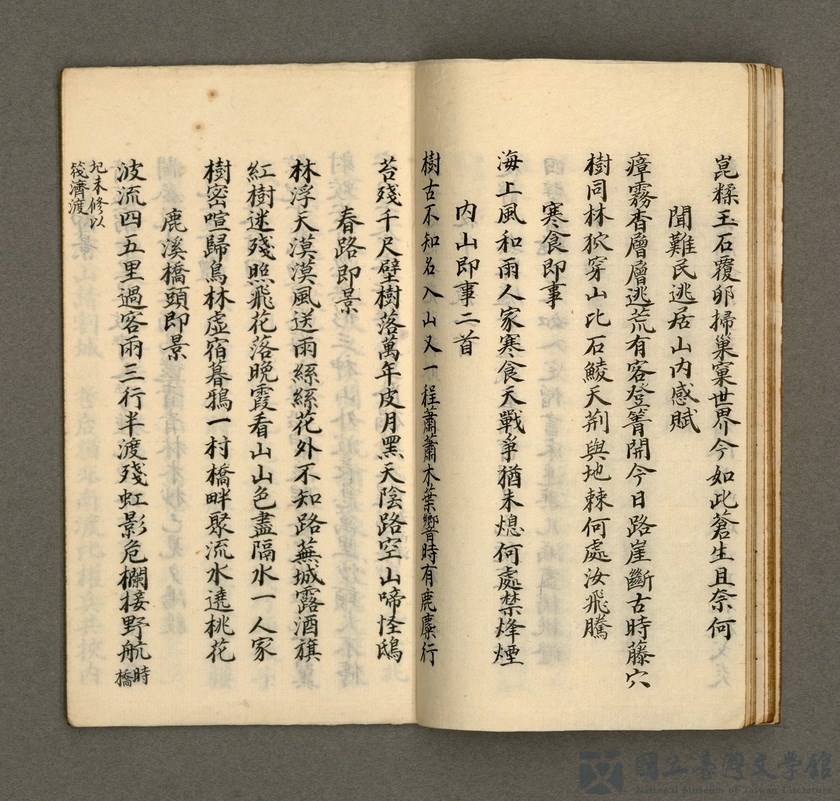 崑糅玉石覆卵掃巢窠世界今如此蒼生且奈何
聞難民逃居山內感賦
瘴霧杳層層逃荒有客登箐開今日路崖斷古時藤穴
樹同林狖穿山比石鯪天荆與地棘何處汝飛騰
寒食即事
海上風和雨人家寒食天戰爭猶未熄何處禁烽煙
內山即事二首
樹古不知名入山又一程蕭蕭木葉響時有鹿麋行
苔殘千尺壁樹落萬年皮月黑天陰路空山啼怪鴟
春路即景
林浮天漠漠風送雨絲絲花外不知路蕪城露酒旗
紅樹迷殘照飛花落晚霞看山山色盡隔水一人家
樹密喧歸鳥林虛宿暮鴉一村橋畔聚流水遶桃花
鹿溪橋頭即景
波流四五里過客雨三行半渡殘虹影危欄接野航時橋
圮未修以
筏濟渡
國立臺灣文學館
National Museum of Taiwan Literature